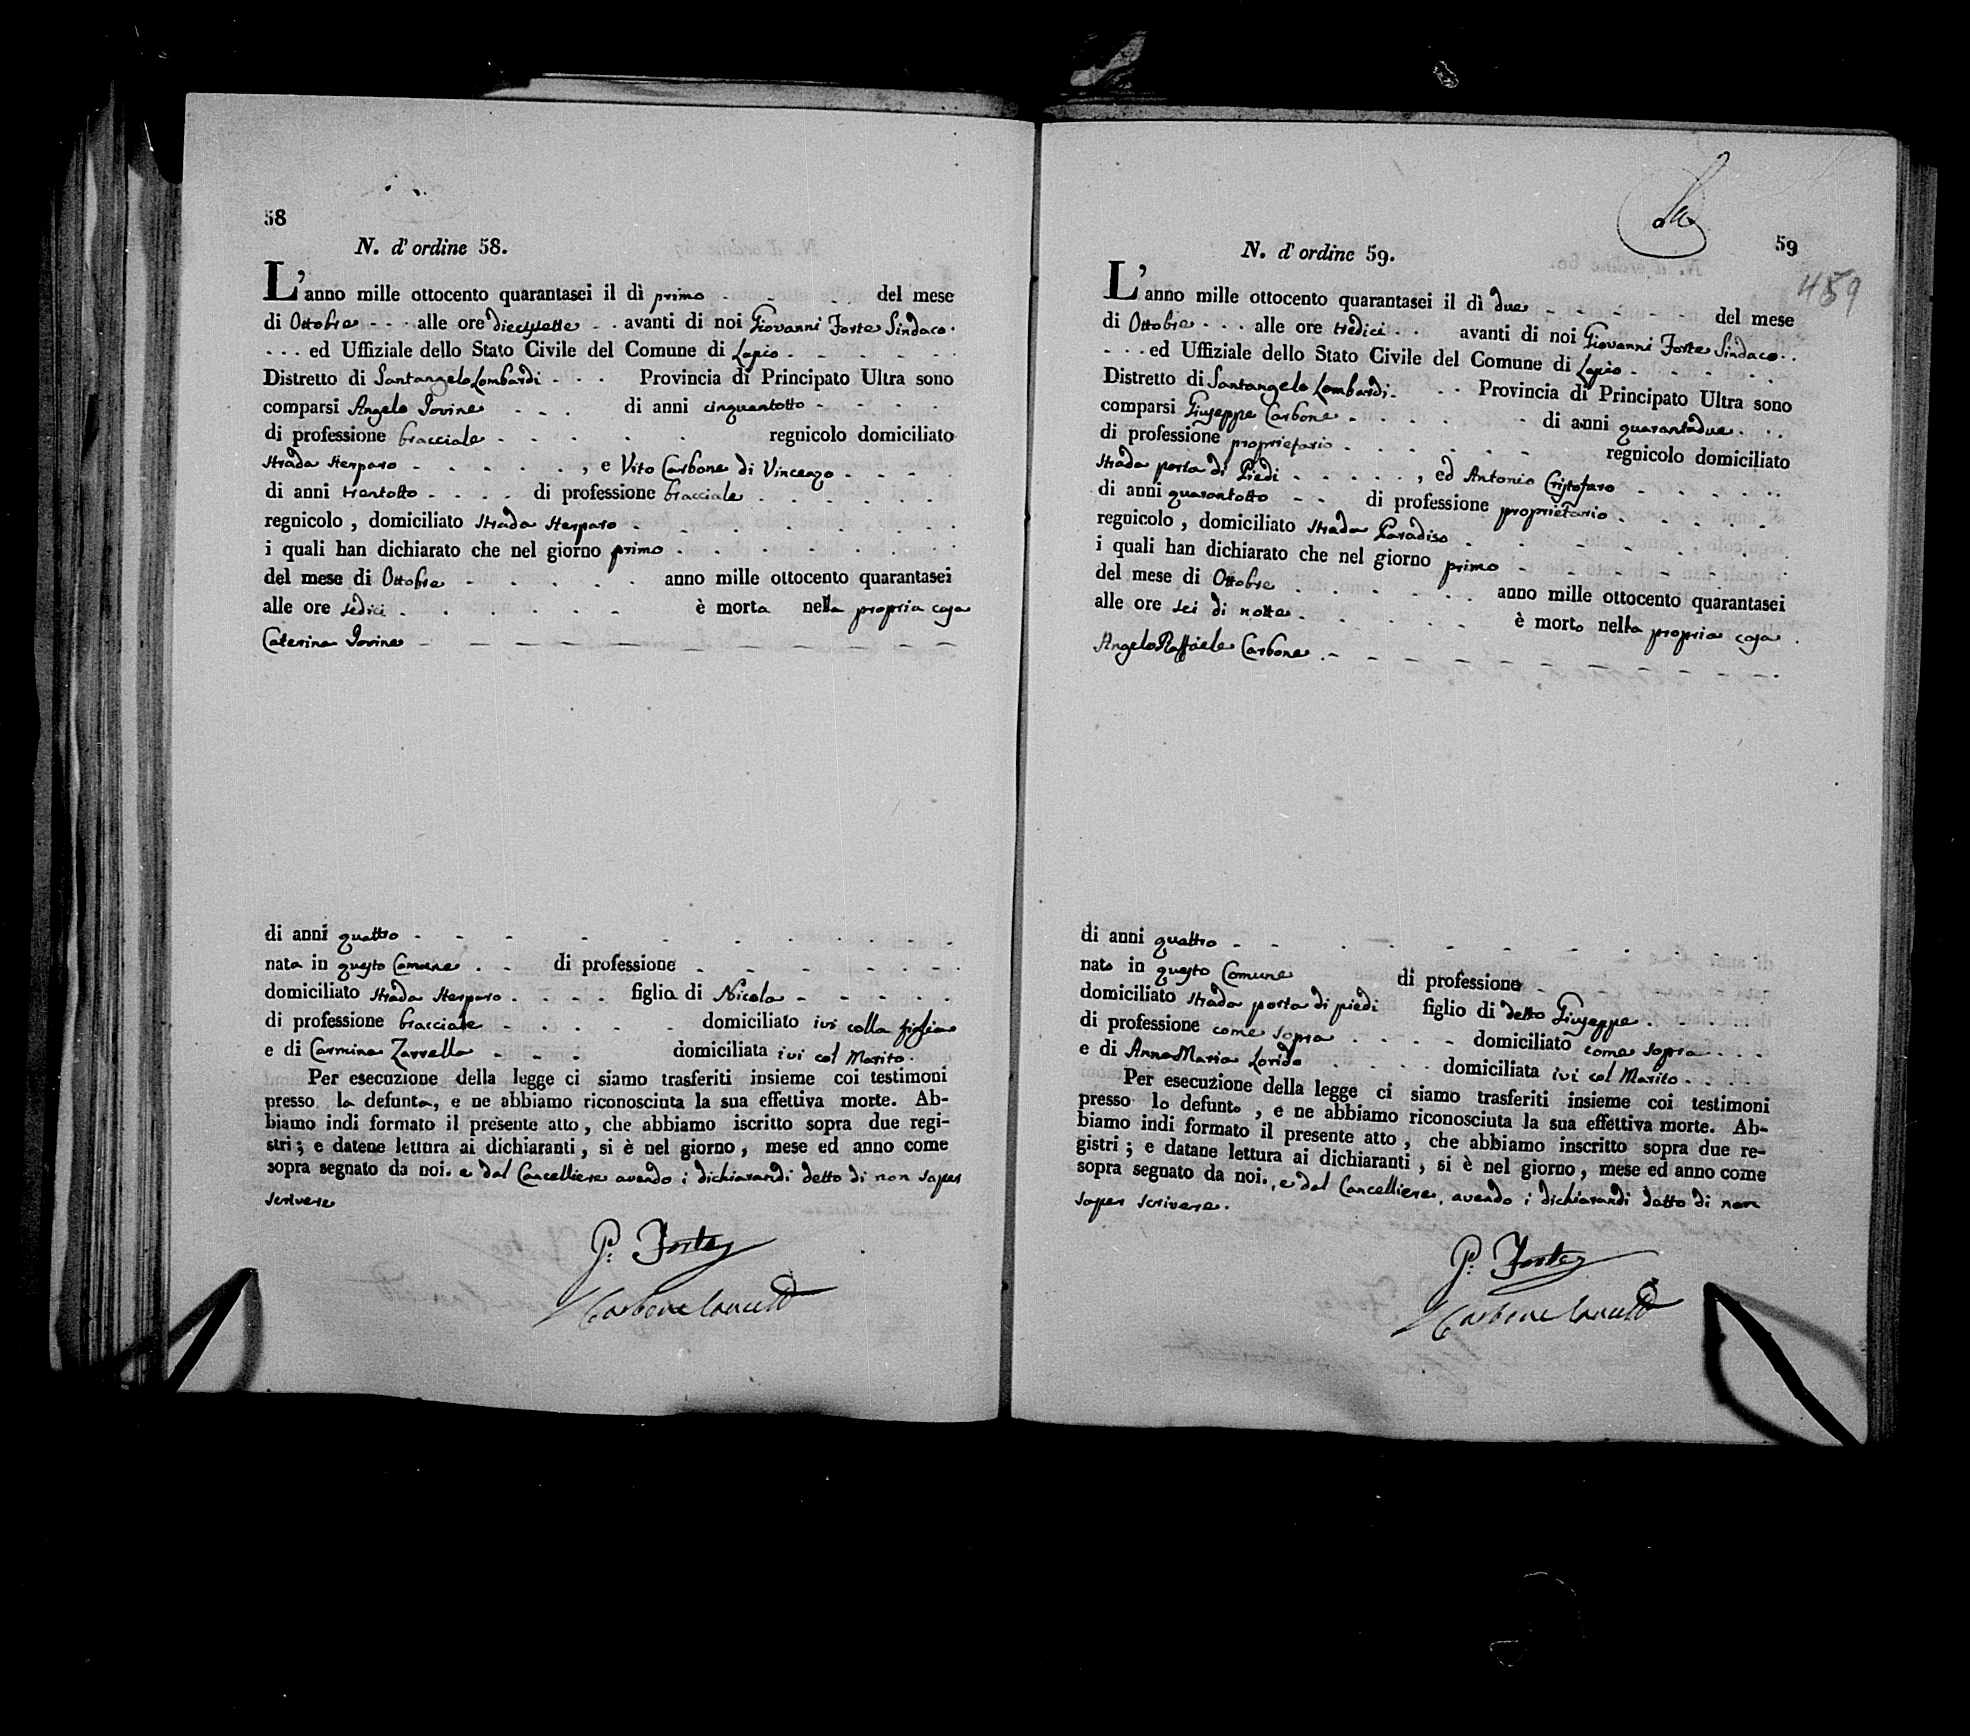 58
N. d'ordine 58.
L'anno mille ottocento quarantasei il dì primo del mese
di Ottobre alle ore diecisette avanti di noi Giovanni Forte Sindaco
ed Uffiziale dello Stato Civile del Comune di Lapio
Distretto di Santangelo Lombardi Provincia di Principato Ultra sono
comparsi Angelo Iovine di anni cinquantotto
di professione bracciale regnicolo domiciliato
Strada Sterparo, e Vito Carbone di Vincenzo
di anni trentotto di professione bracciale
regnicolo, domiciliato Strada Sterparo
i quali han dichiarato che nel giorno primo
del mese di Ottobre anno mille ottocento quarantasei
alle ore sedici è morta nella propria casa
Caterina Iovine
di anni quattro
nata in questo Comune di professione
domiciliato Strada Sterparo figlia di Nicola
di professione bracciale domiciliato ivi colla figlia
e di Carmina Zarrella domiciliata ivi col Marito.
Per esecuzione della legge ci siamo trasferiti insieme coi testimoni
presso la defunta, e ne abbiamo riconosciuta la sua effettiva morte. Ab-
biamo indi formato il presente atto, che abbiamo iscritto sopra due regi-
stri; e datene lettura ai dichiaranti, si è nel giorno, mese ed anno come
sopra segnato da noi. e dal Cancelliere avendo i dichiaranti detto di non saper
scrivere
G. Forte
Carbone Canc
59
459
N. d'ordine 59.
L'anno mille ottocento quarantasei il dì due del mese
di Ottobre alle ore tredici avanti di noi Giovanni Forte Sindaco
ed Uffiziale dello Stato Civile del Comune di Lapio
Distretto di Santangelo Lombardi Provincia di Principato Ultra sono
comparsi Giuseppe Carbone di anni quarantadue
di professione proprietario regnicolo domiciliato
Strada porta di Piedi, ed Antonio Cristofaro
di anni quarantotto di professione proprietario
regnicolo, domiciliato Strada Paradiso
i quali han dichiarato che nel giorno primo
del mese di Ottobre anno mille ottocento quarantasei
alle ore sei di notte è morto nella propria casa
Angelo Raffaele Carbone
di anni quattro
nato in questo Comune di professione
domiciliato Strada porta di piedi figlio di detto Giuseppe
di professione come sopra domiciliato come sopra
e di Anna Maria Lorido domiciliata ivi col Marito
Per esecuzione della legge ci siamo trasferiti insieme coi testimoni
presso lo defunto, e ne abbiamo riconosciuta la sua effettiva morte. Ab-
biamo indi formato il presente atto, che abbiamo inscritto sopra due re-
gistri; e datane lettura ai dichiaranti, si è nel giorno, mese ed anno come
sopra segnato da noi., e dal Cancelliere, avendo i dichiaranti detto di non
saper scrivere.
G. Forte
Carbone Canc